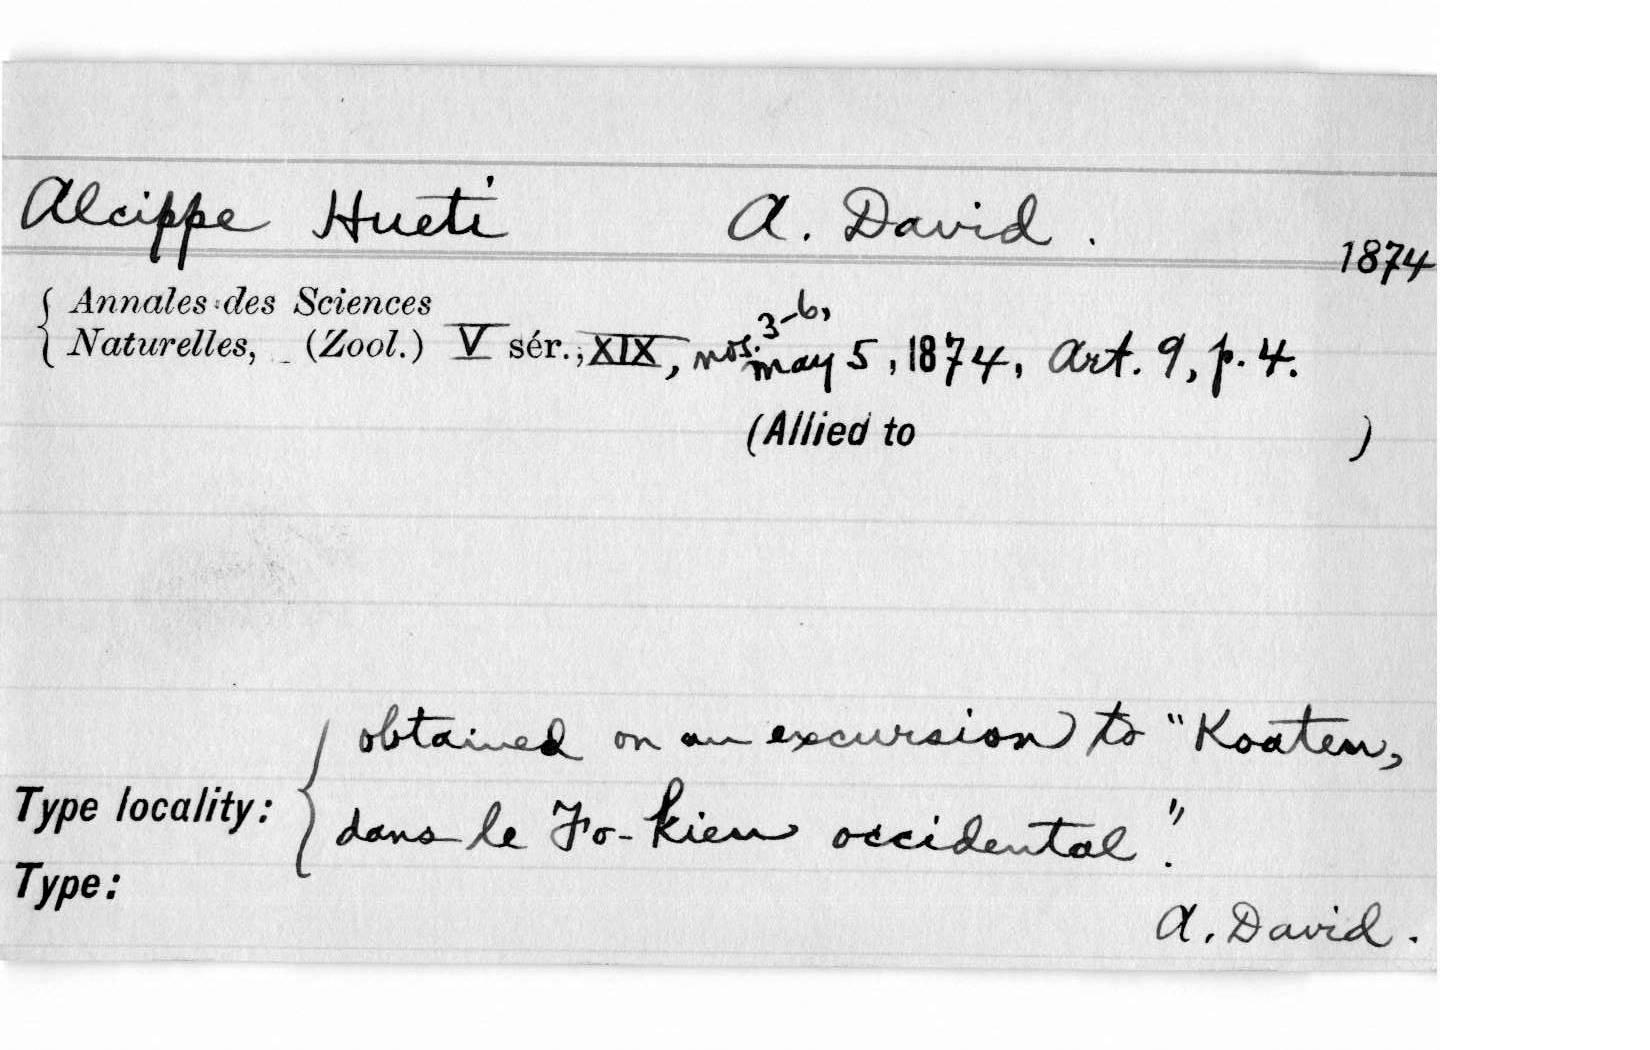 Alcippe Hueti A. David.
1874
Annales des Sciences
Naturelles, (Zool.) V sér., XIX, nos. 3-6, May 5, 1874, Art. 9, p. 4.
(Allied to )
obtained on an excursion to "Koaten,
Type locality: dans le Fo-kien occidental."
Type:
A. David.